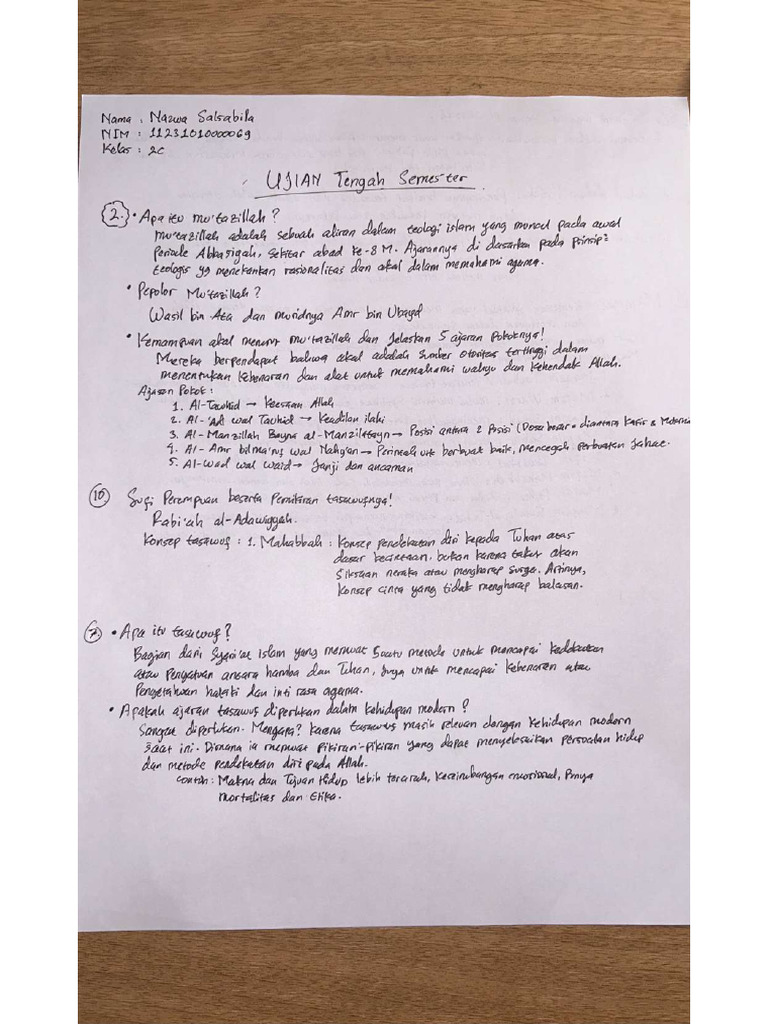 Nama : Nazwa Salsabila
NIM : 11231010000069
Kelas : 2C
UJIAN Tengah Semester
2. • Apa itu mu'tazillah?
Mu'tazillah adalah sebuah aliran dalam teologi islam yang muncul pada awal
Periode Abbasiyah, sekitar abad ke-8 M. Ajarannya di dasarkan pada prinsip²
teologis yg menekankan rasionalitas dan akal dalam memahami agama.
• Pepolor Mu'tazillah?
Wasil bin Ata dan muridnya Amr bin Ubayd
• Kemampuan akal menurut mu'tazillah dan Jelaskan 5 ajaran Pokoknya!
Mereka berpendapat bahwa akal adalah sumber otoritas tertinggi dalam
menentukan kebenaran dan alat untuk memahami wahyu dan kehendak Allah.
Ajaran Pokok :
1. Al-Tawhid → Keesaan Allah
2. Al-'Adl wal Tauhid → Keadilan ilahi
3. Al-Manzillah Bayna al-Manzilatayn → Posisi antara 2 Posisi (Dosa besar = diantara Kafir &
4. Al-Amr bilma'ruf wal Nahyan → Perintah utk berbuat baik, mencegah perbuatan Jahat.
5. Al-Wad wal waid → Janji dan ancaman
10 Sufi Perempuan beserta Pemikiran tasawufnya!
Rabi'ah al-Adawiyyah.
Konsep tasawuf : 1. Mahabbah : Konsep pendekatan diri kepada Tuhan atas
dasar kecintaan. bukan karena takut akan
siksaan neraka atau mengharap surga. Artinya,
konsep cinta yang tidak mengharap balasan.
7 • Apa itu tasawuf?
Bagian dari Syari'at Islam yang memuat Suatu metode untuk mencapai kedekatan
atau Penyatuan antara hamba dan Tuhan, Juga untuk mencapai Kebenaran atau
Pengetahuan hakiki dan inti rasa agama.
• Apakah ajaran tasawuf diperlukan dalam kehidupan modern?
Sangat diperlukan. Mengapa? karena tasawuf masih relevan dengan kehidupan modern
saat ini. Dimana ia memuat pikiran-pikiran yang dapat menyelesaikan Persoalan hidup
dan metode pendekatan diri pada Allah.
contoh : Makna dan Tujuan Hidup lebih terarah, Keseimbangan emosional, Punya
mortalitas dan Etika.